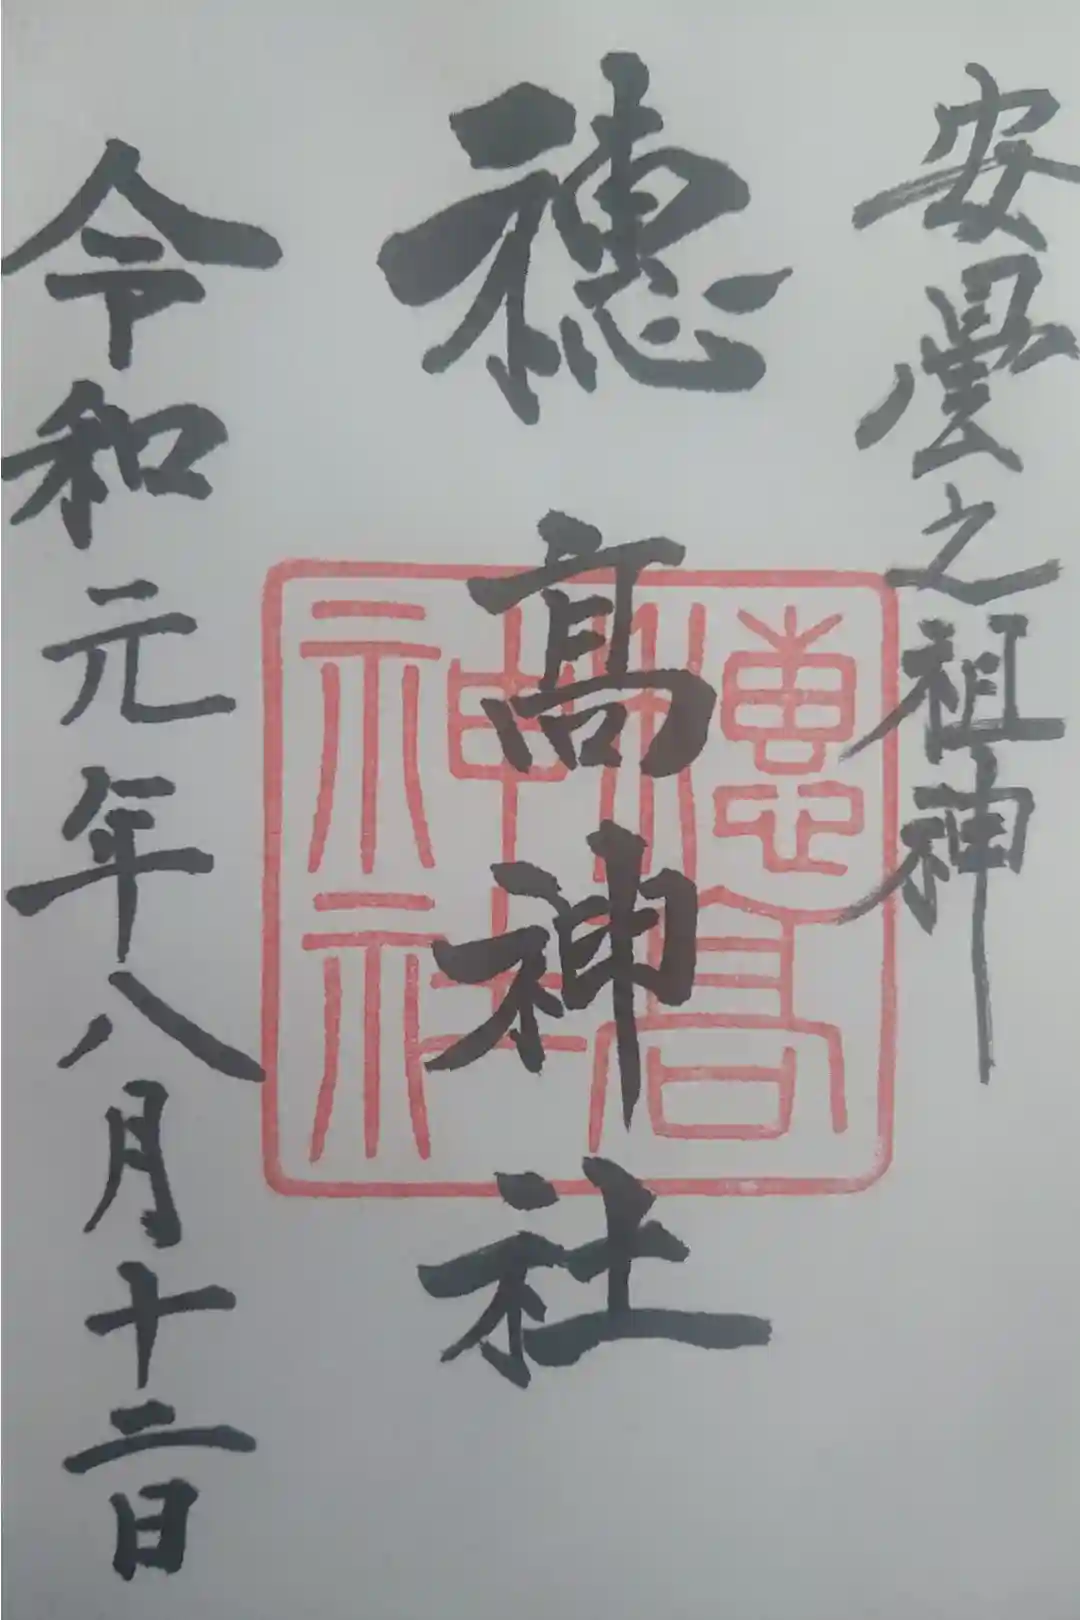 安曇之祖神
穂髙神社
穗高神社
令和元年八月十二日